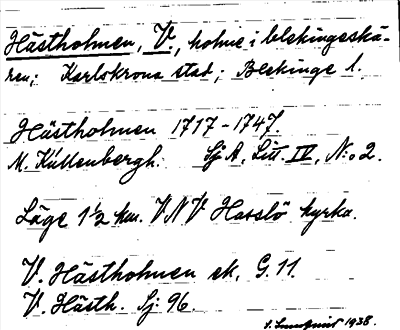 Hästholmen, V., holme i blekingeskä-
ren; Karlskrona stad; Blekinge l.
Hästholmen 1717-1747.
M. Kullenbergh. Sj A, Litt. IV, N:o 2.
Läge 1½ km. VNV Hasslö kyrka.
V. Hästholmen ek. G. 11.
V. Hästh. Sj. 96.
1938